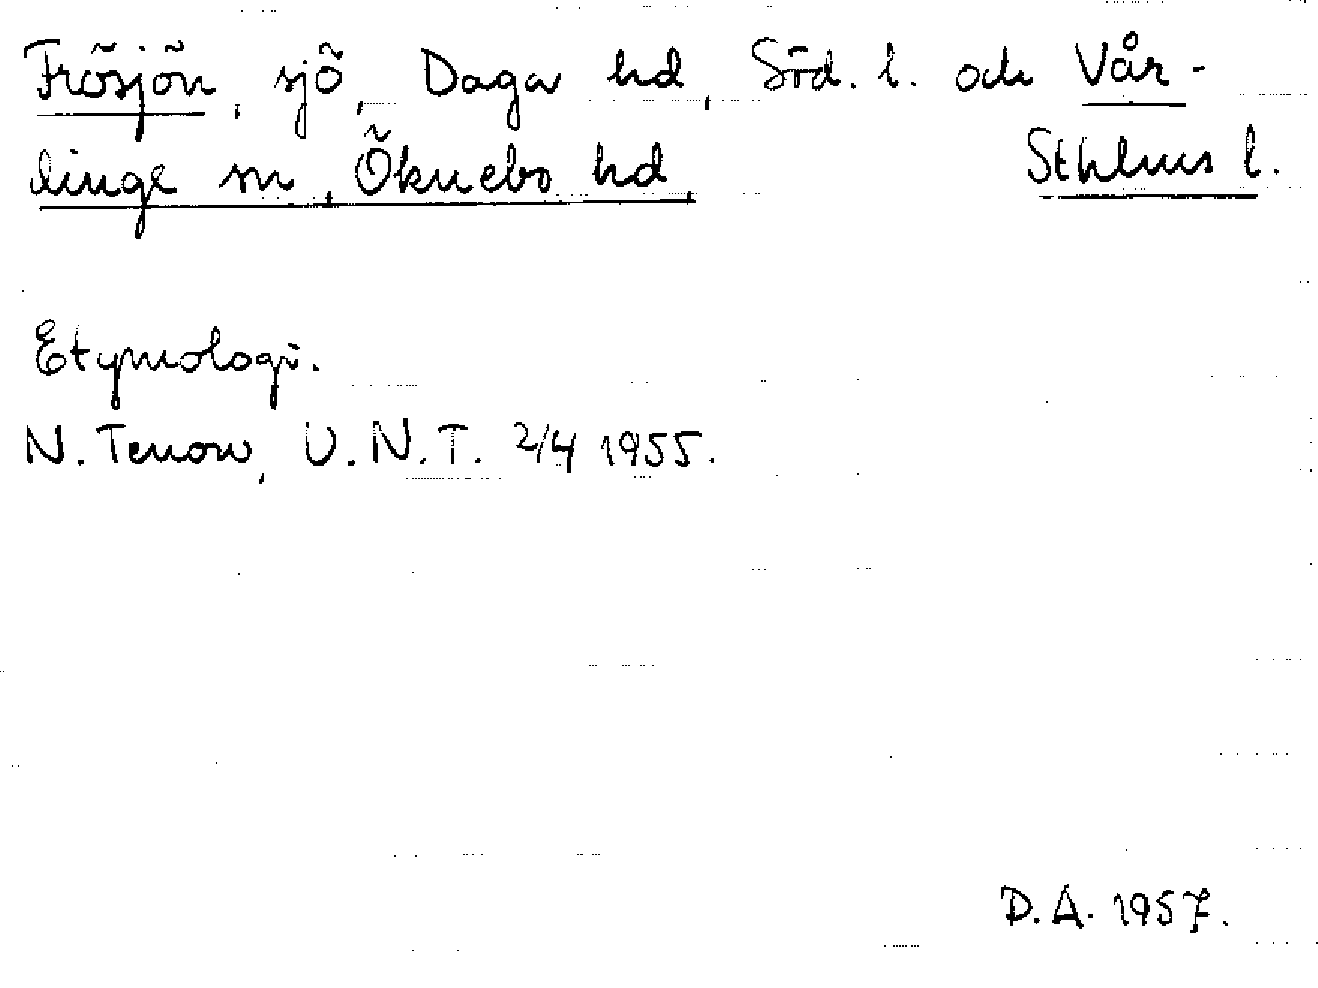 Frösjön, sjö, Daga hd, Söd. l. och Vår-
linge sn, Öknebo hd, Sthlms l.
Etymologi.
N. Tenow, U.N.T. 2/4 1955.
D.A. 1957.